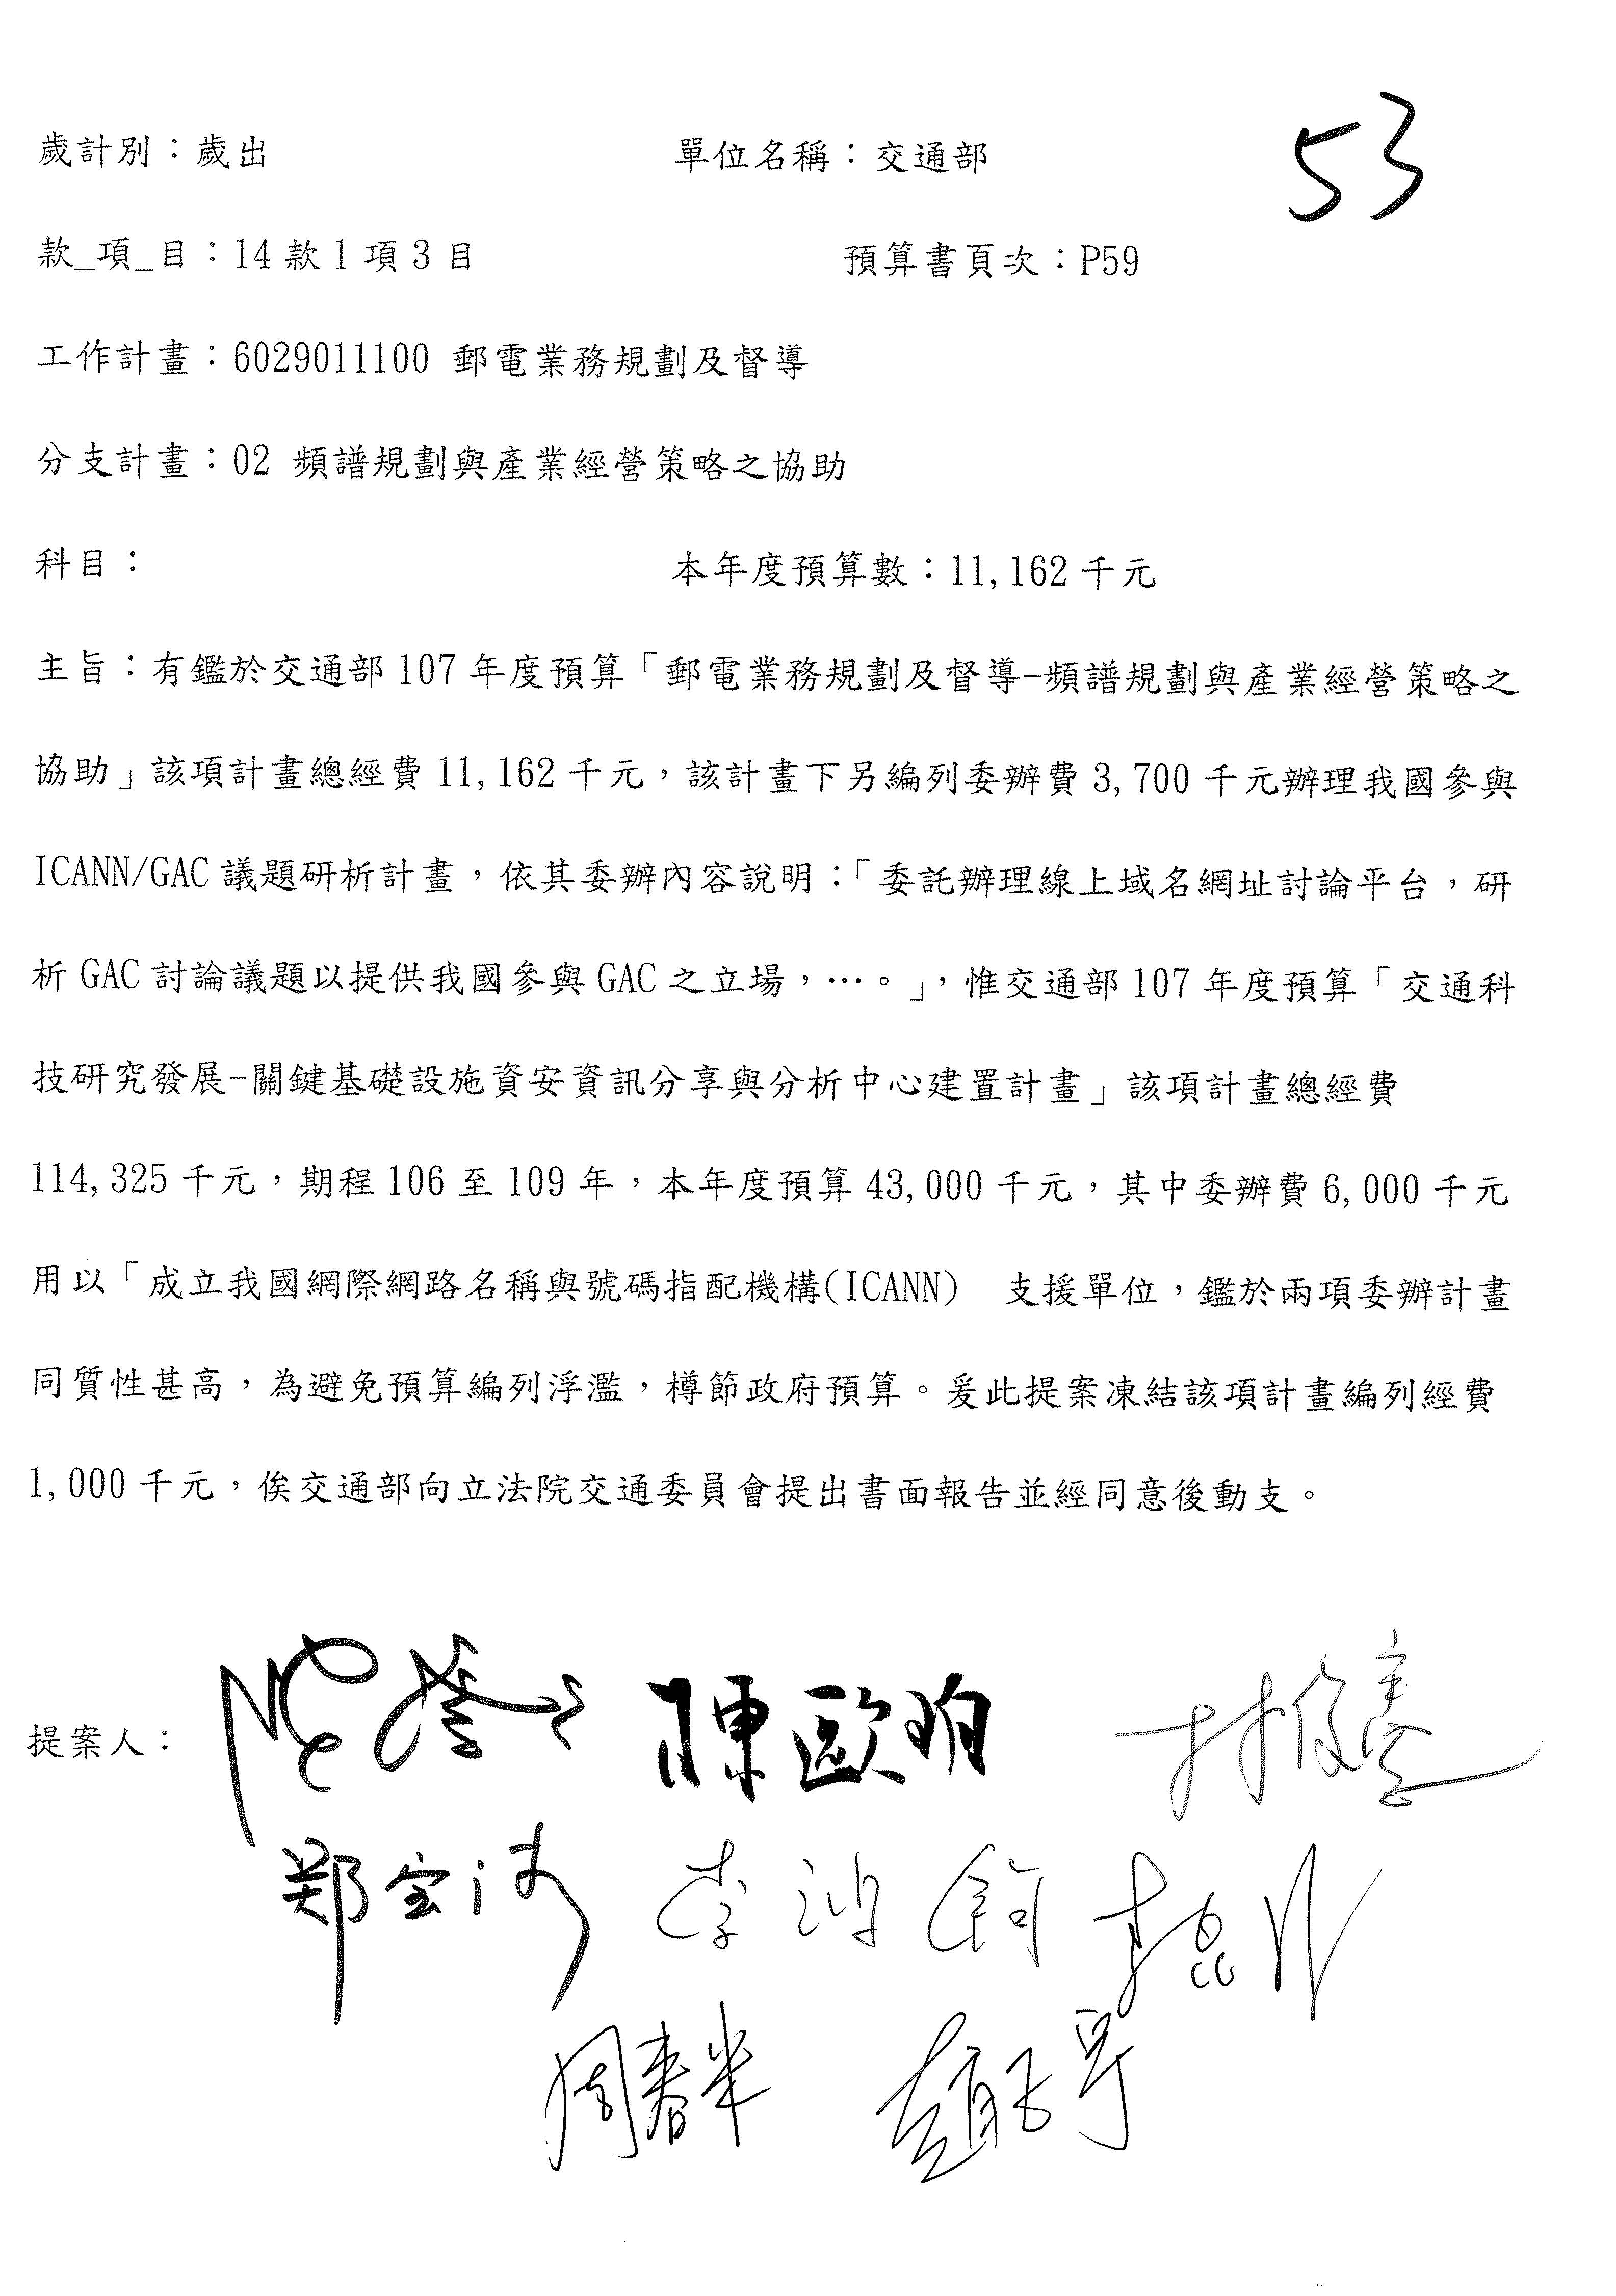 53
歲計別：歲出 單位名稱：交通部
款_項_目：14款1項3目 預算書頁次：P59
工作計畫：6029011100 郵電業務規劃及督導
分支計畫：02 頻譜規劃與產業經營策略之協助
科目： 本年度預算數：11,162千元
主旨：有鑑於交通部107年度預算「郵電業務規劃及督導-頻譜規劃與產業經營策略之
協助」該項計畫總經費11,162千元，該計畫下另編列委辦費3,700千元辦理我國參與
ICANN/GAC議題研析計畫，依其委辦內容說明：「委託辦理線上域名網址討論平台，研
析GAC討論議題以提供我國參與GAC之立場，…。」，惟交通部107年度預算「交通科
技研究發展-關鍵基礎設施資安資訊分享與分析中心建置計畫」該項計畫總經費
114,325千元，期程106至109年，本年度預算43,000千元，其中委辦費6,000千元
用以「成立我國網際網路名稱與號碼指配機構(ICANN) 支援單位，鑑於兩項委辦計畫
同質性甚高，為避免預算編列浮濫，樽節政府預算。爰此提案凍結該項計畫編列經費
1,000千元，俟交通部向立法院交通委員會提出書面報告並經同意後動支。
提案人： 陳歐珀 林俊憲
郑宝清 李鴻鈞
周春米 趙正宇